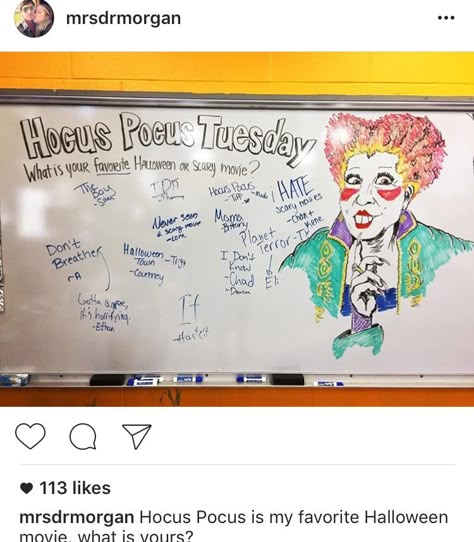 mrsdrmorgan
Hocus Pocus Tuesday
What is your favorite Halloween or Scary movie?
The Boy
Hocus Pocus
- Tiff
I HATE
scary movies
Never seen
a scary movie
Mama
Brittany
Planet
Terror
Don't
Breathe
- A
Halloween
Town
- Trista
- Courtney
I Don't
Know
- Chad
Eli
Gotta agree,
it's horrifying.
- Ethan
It
113 likes
mrsdrmorgan Hocus Pocus is my favorite Halloween
movie, what is yours?